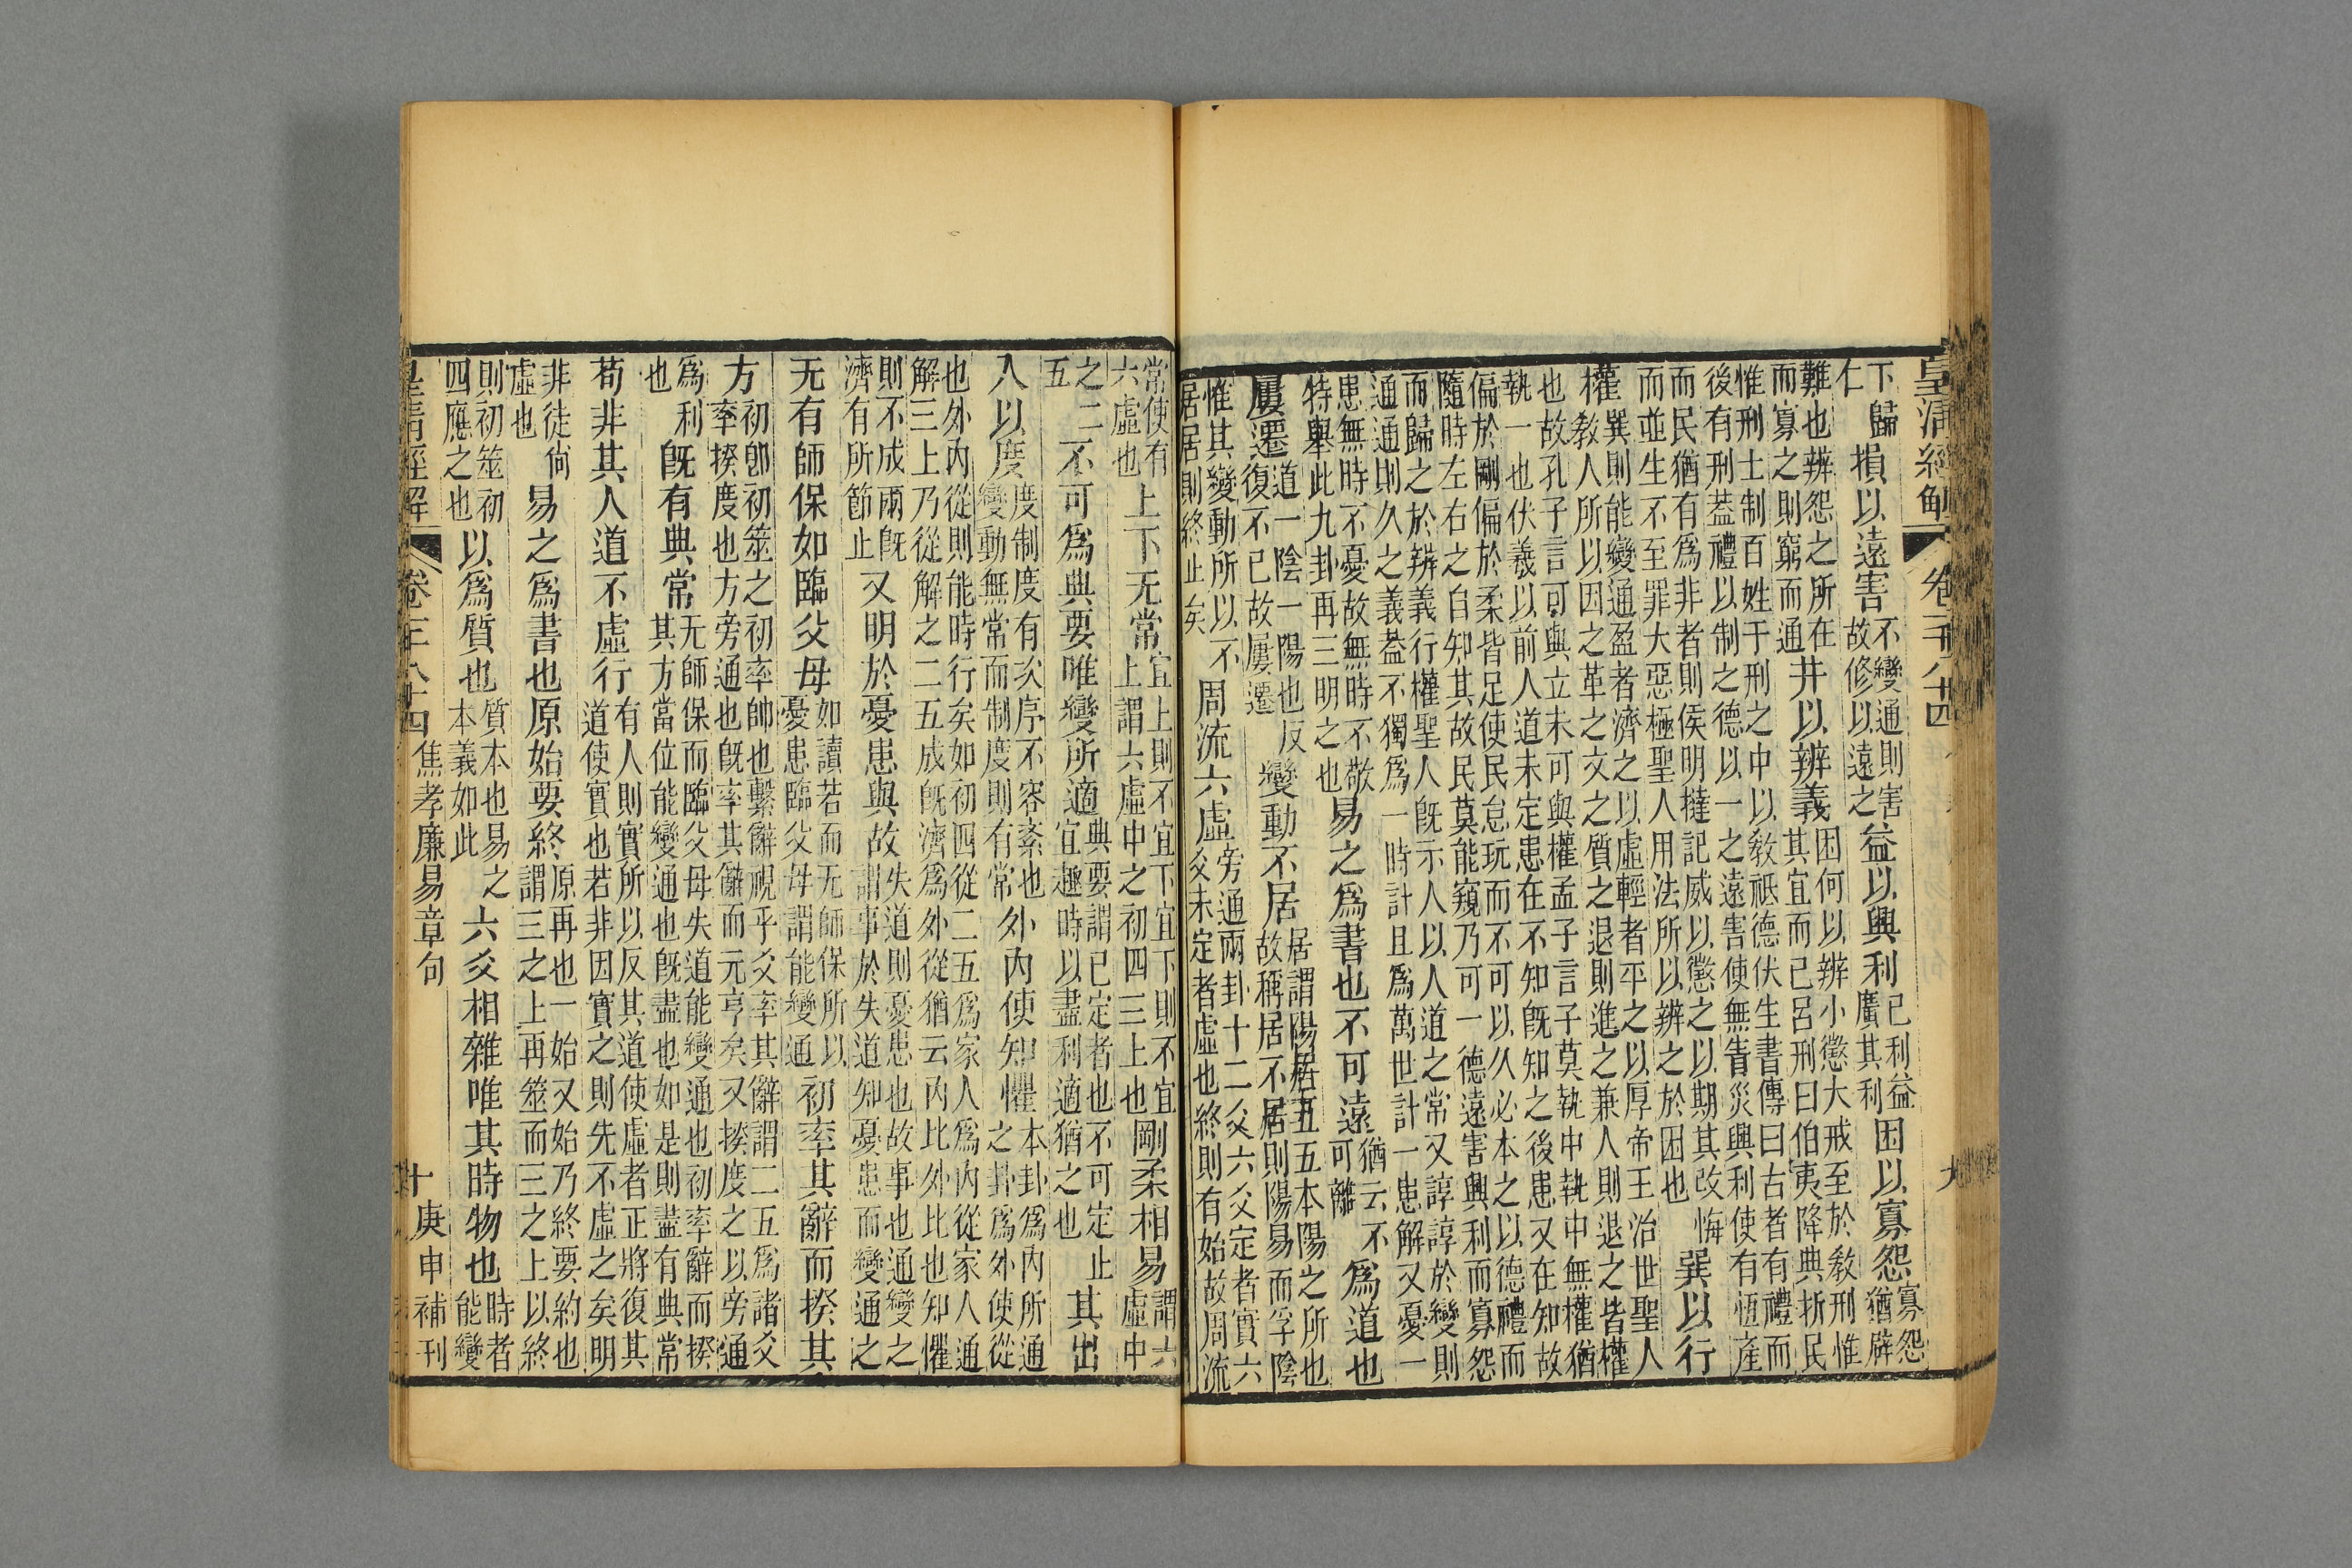 皇清經解 卷千八十四 九
下歸仁損以遠害不變通則害故修以遠之益以興利已利益廣其利困以寡怨寡怨猶辟
難也辨怨之所在而寡之則窮而通井以辨義困何以辨小懲大戒至於敎刑惟其宜而已呂刑曰伯夷降典折民
惟刑士制百姓于刑之中以敎祗德伏生書傳曰古者有禮而後有刑蓋禮以制之德以一之遠害使無眚災興利使有恆產
而民猶有爲非者則侯明撻記威以懲之以期其改悔而並生不至罪大惡極聖人用法所以辨之於困也巽以行
權巽則能變通盈者濟之以虛輕者平之以厚帝王治世聖人敎人所以因之革之文之質之退則進之兼人則退之皆權
也故孔子言可與立未可與權孟子言子莫執中執中無權猶執一也伏羲以前人道未定患在不知旣知之後患又在知故
偏於剛偏於柔皆足使民怠玩而不可以久必本之以德禮而隨時左右之自知其故民莫能窺乃可一德遠害興利而寡怨
而歸之於辨義行權聖人旣示人以人道之常又諄諄於變則通通則久之義蓋不獨爲一時計且爲萬世計一患解又憂一
患無時不憂故無時不敬特舉此九卦再三明之也易之爲書也不可遠猶云不可離爲道也
屢遷道一陰一陽也反復不已故屢遷變動不居居謂陽居五五本陽之所也故稱居不居則陽易而孚陰
惟其變動所以不居居則終止矣周流六虛旁通兩卦十二爻六爻定者實六爻未定者虛也終則有始故周流
常使有六虛也上下无常宜上則不宜下宜下則不宜上謂六虛中之初四三上也剛柔相易謂六虛中
之二五不可爲典要唯變所適典要謂已定者也不可定止宜趣時以盡利適猶之也其出
入以度度制度有次序不容紊也變動無常而制度則有常外內使知懼本卦爲內所通之卦爲外使從
也外內從則能時行矣如初四從二五爲家人爲內從家人通解三上乃從解之二五成旣濟爲外從猶云內比外比也知懼
則不成兩旣濟有所節止又明於憂患與故失道則憂患也故事也通變之謂事於失道知憂患而變通之
无有師保如臨父母如讀若而无師保所以憂患臨父母謂能變通初率其辭而揆其
方初卽初筮之初率帥也繫辭視乎爻率其辭謂二五爲諸爻率揆度也方旁通也旣率其辭而元亨矣又揆度之以旁通
爲利也旣有典常无師保而臨父母失道能變通也初率辭而揆其方當位能變通也旣盡也如是則盡有典常
苟非其人道不虛行有人則實所以反其道使虛者正將復其道使實也若非因實之則先不虛之矣明
非徒尙虛也易之爲書也原始要終原再也一始又始乃終要約也謂三之上再筮而三之上以終
則初筮初四應之也以爲質也質本也易之本義如此六爻相雜唯其時物也時者能變
皇清經解 卷千八十四 焦孝廉易章句 十 庚申補刊